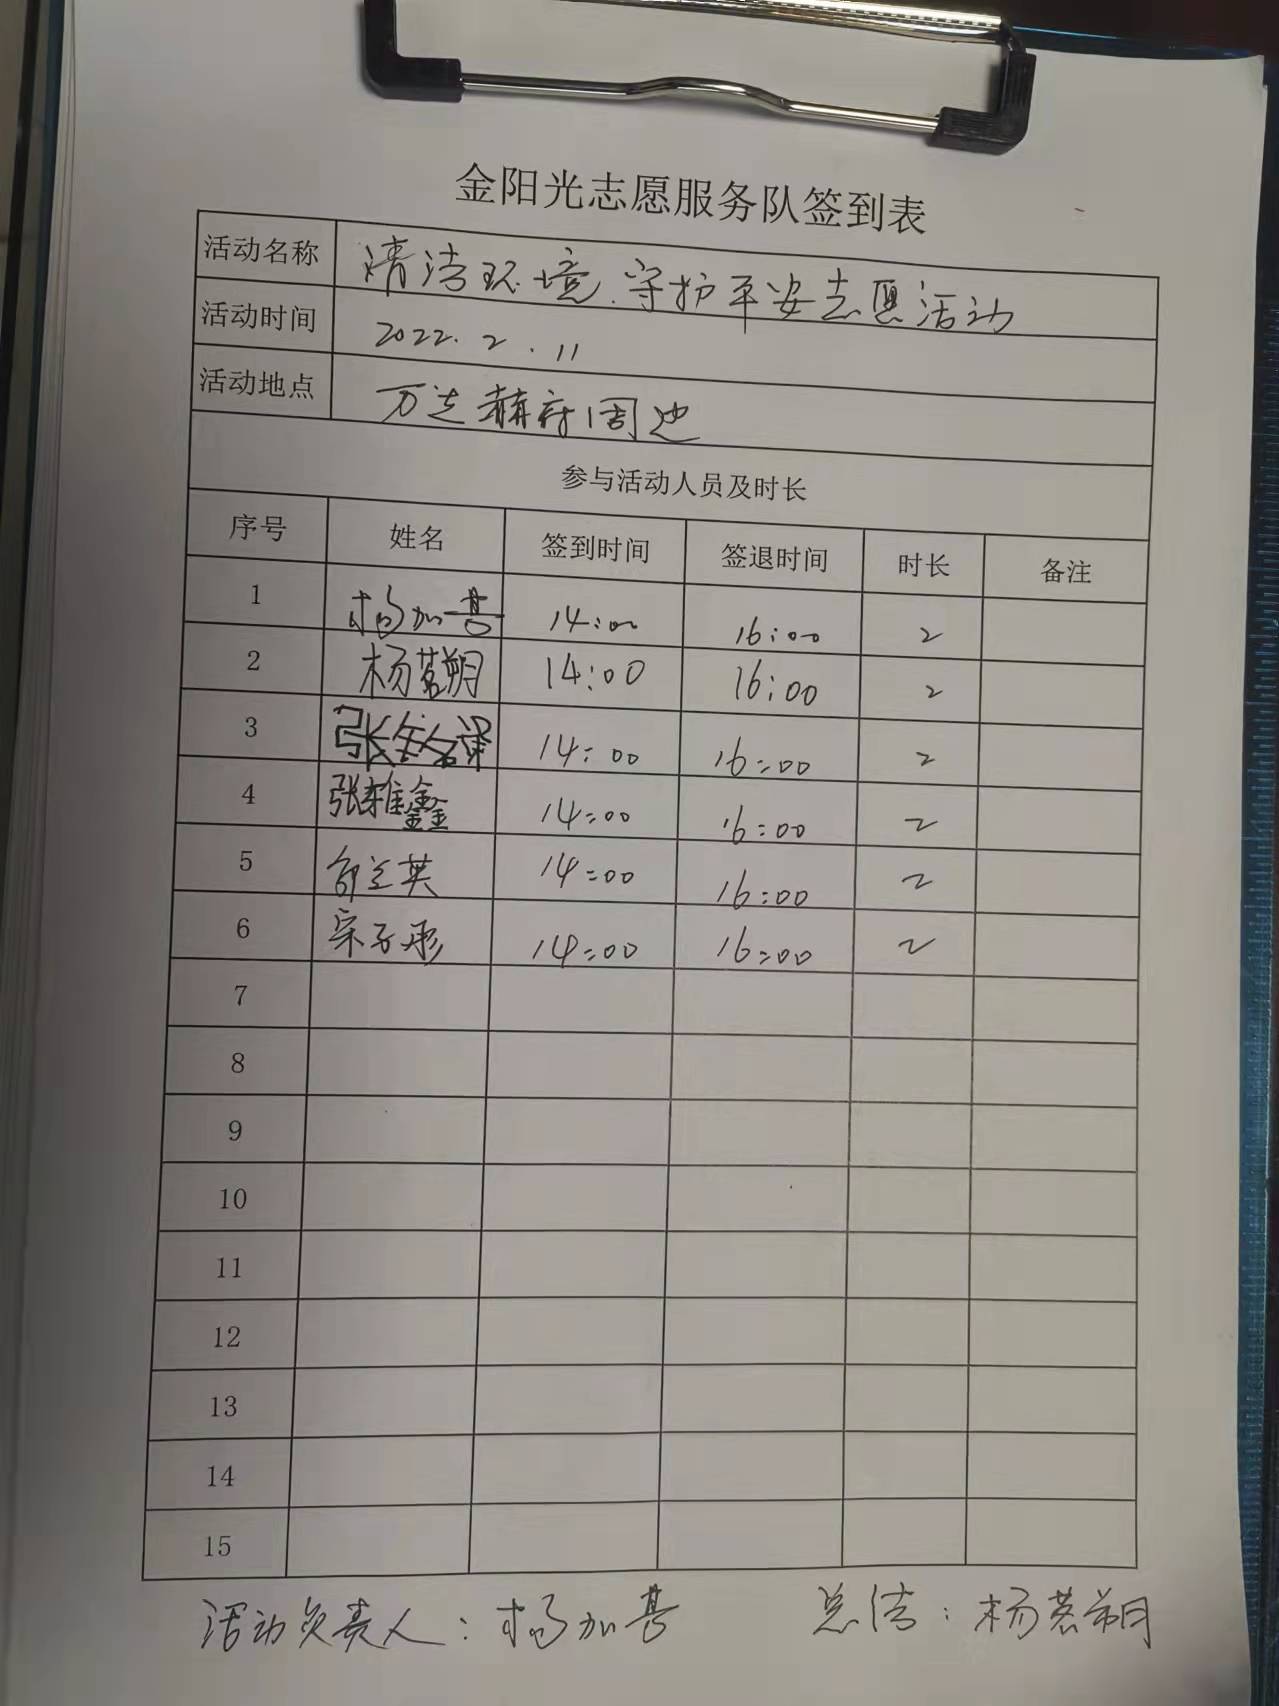 金阳光志愿服务队签到表
活动名称 清洁环境.守护平安志愿活动
活动时间 2022.2.11
活动地点 万达赫府周边
参与活动人员及时长
序号 姓名 签到时间 签退时间 时长 备注
1 杨加善 14:00 16:00 2
2 杨茗朔 14:00 16:00 2
3 张 14:00 16:00 2
4 张雅鑫 14:00 16:00 2
5 兰英 14:00 16:00 2
6 宋子彤 14:00 16:00 2
7
8
9
10
11
12
13
14
15
活动负责人:杨加善 总结:杨茗朔